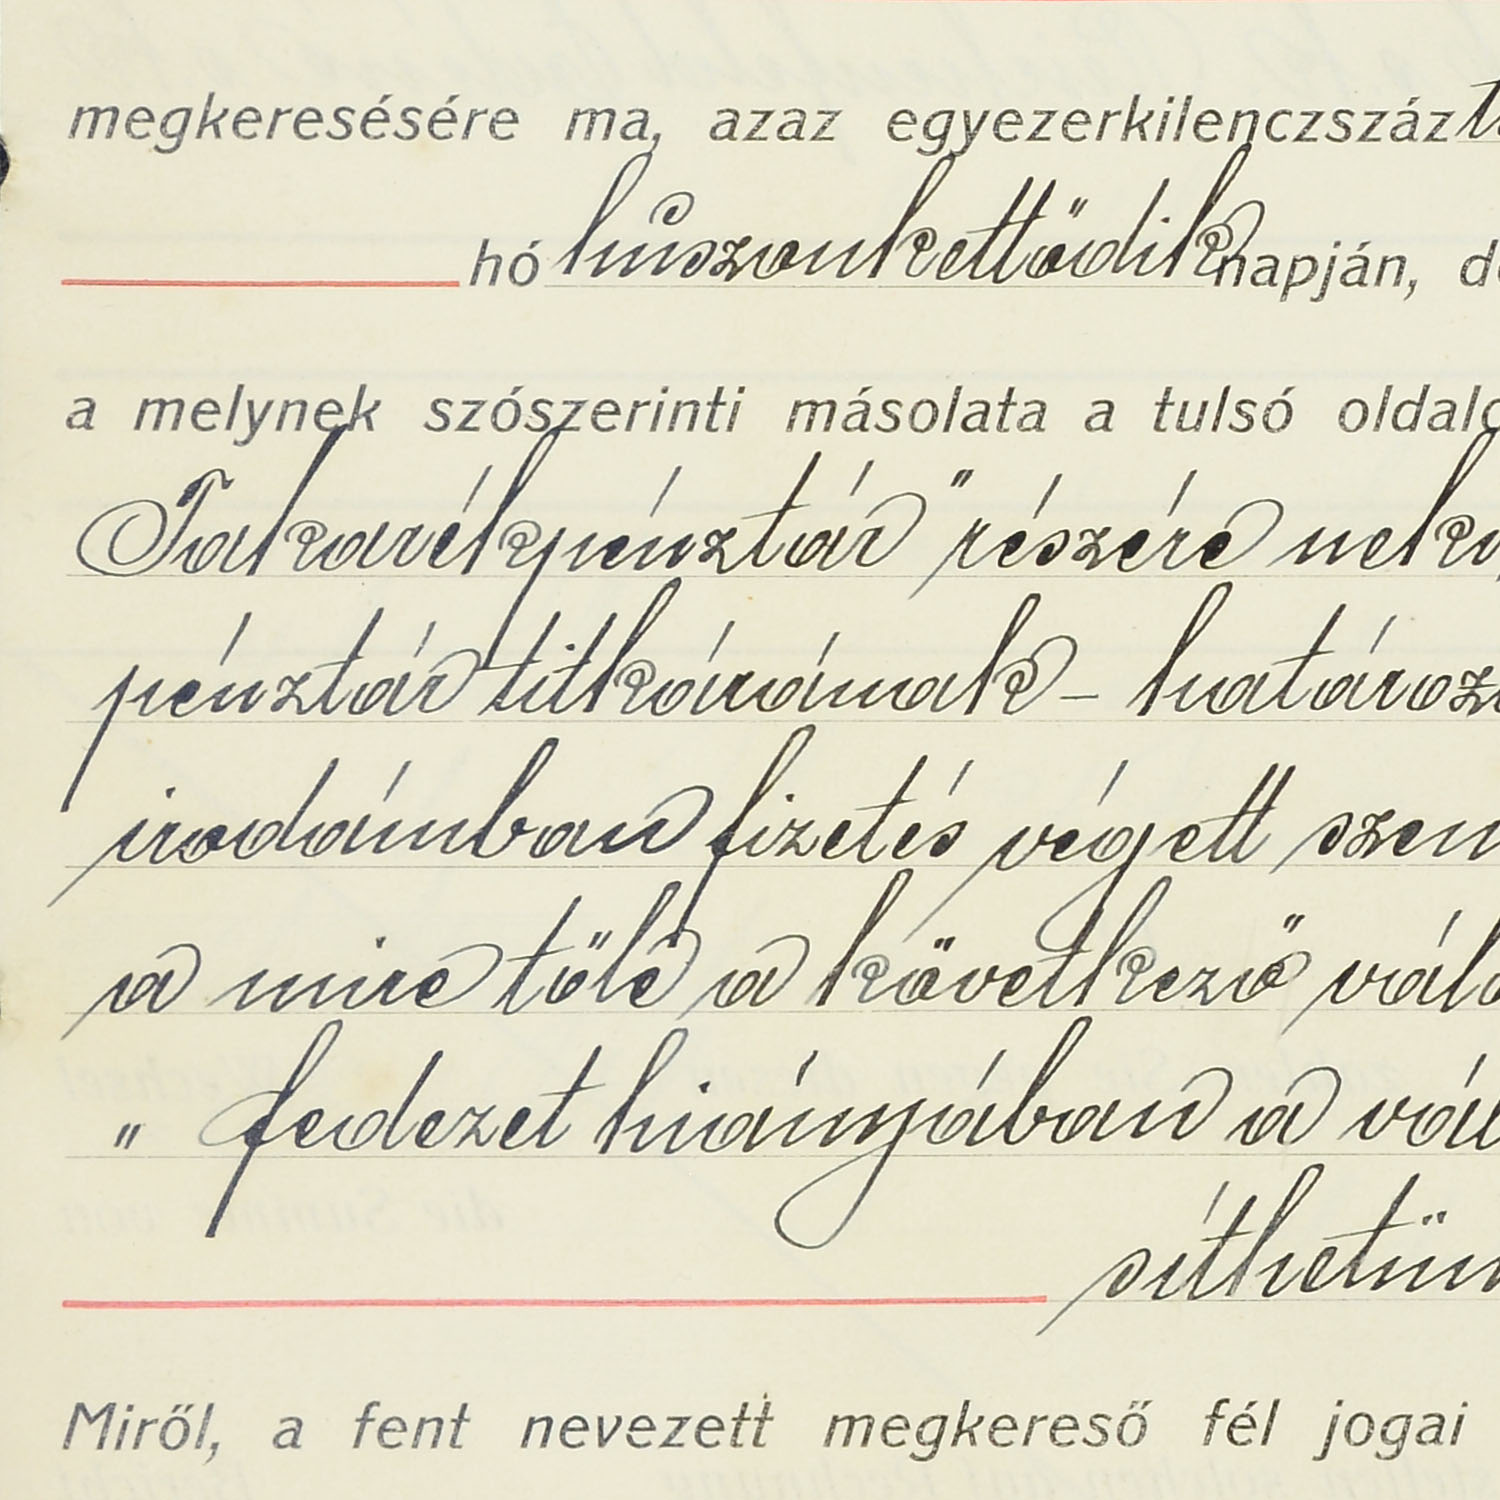 megkeresésére ma, azaz egyezerkilenczszáz
hó huszonkettődik napján,
a melynek szószerinti másolata a tulsó
Takarékpénztár" részére
pénztár titkárának – 
irodámban fizetés végett
a mire tőle a következő
„ fedezet hiányában a
Miről, a fent nevezett megkereső fél jogai